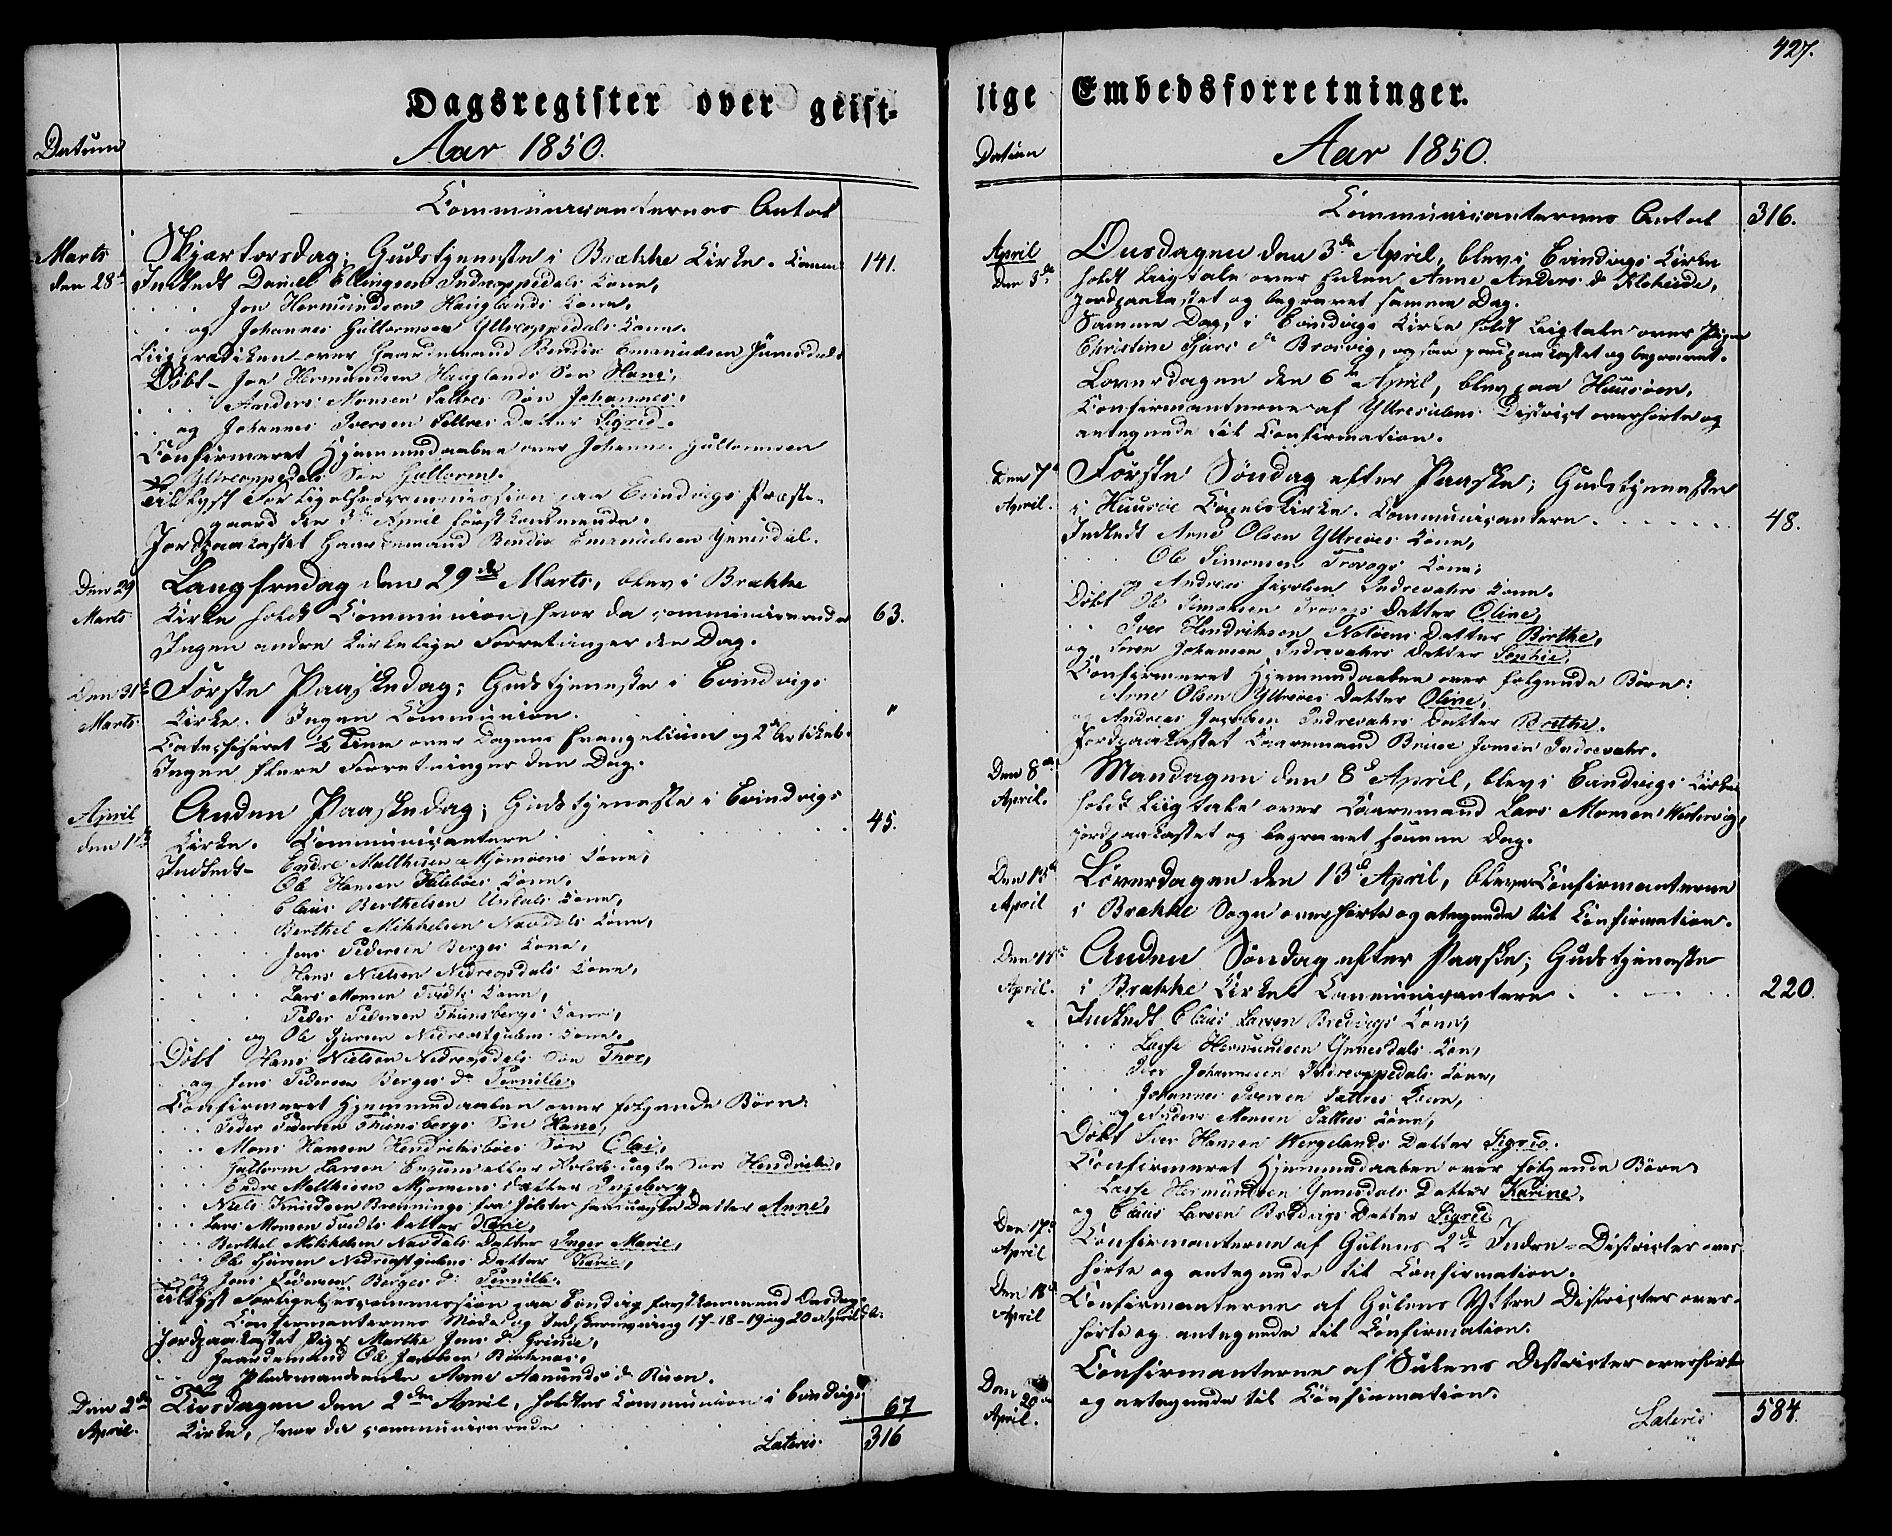 427.
Dagsregister over geist-
Datum
Aar 1850.
Communicanternes Antal
Marts
den 28de
Skjærtorsdag; Gudstjeneste i Brække Kirke. Comm: 141.
Indledt Daniel Ellingsen Indreoppedals Kone,
Jon Hermundsen Hauglands Kone,
og Johannes Guttormsen Yttreoppedals Kone.
Liigprædiken over Gaardemand Bendix Emanuelsen
Døbt - Jon Hermundsen Hauglands Søn Hans,
Anders Monsen Søn Johannes,
og Johannes Iversen Datter Sigrid.
Confirmeret Hjemmedaaben over Johannes Guttormsen
Yttreoppedals Søn Guttorm.
Tillyst Forligelsescommission paa Evindvigs Præste-
gaard den 3de April førstkommende.
Jordpaakastet Gaardemand Bendix Emanuelsen Ynnesdal.
Den 29
Marts
Langfredag den 29de Marts, blev i Brække
Kirke holdt Communion, hvor da communicerede 63.
Ingen andre kirkelige Forretninger den Dag.
Den 31te
Marts
Første Paaskedag; Gudstjeneste i Evindvigs
Kirke. Ingen Communion. "
Catechiseret ½ Time over Dagens Evangelium og 2den Artikel.
Ingen flere Forretninger den Dag.
April
den 1ste
Anden Paaskedag; Gudstjeneste i Evindvigs
Kirke. Communicantere 45.
Indledt - Endre Matthisen Mjømens Kone,
Ole Hansen Kone,
Claus Berthelsen Kone,
Berthel Mikkelsen Navdals Kone,
Jens Pedersen Berges Kone,
Hans Nielsen Nedreopdals Kone,
Lars Monsen Tvedts Kone,
Peder Pedersen Thunsbergs Kone,
og Ole Kone.
Døbt Hans Nielsen Nedreopdals Søn Thor,
og Jens Pedersen Berges Dr. Pernille.
Confirmeret Hjemmedaaben over følgende Børn:
Peder Pedersen Thunsbergs Søn Hans,
Mons Hansen Søn Olai,
Guttorm Larsen Søn Hendrik,
Endre Matthisen Mjømens Datter Ingeborg,
Niels Knudsen fra Jølster Datter Anne,
Lars Monsen Tvedts Datter Karie,
Berthel Mikkelsen Navdals Datter Inger Marie,
Ole Datter Karie,
og Jens Pedersen Berges Dr. Pernille.
Tillyst Forligelsescommission paa Evindvig førstkommend Onsdag.
Confirmanternes Møde og Indskrivning 17-18-19 og 20 April
Jordpaakastet Pige Marthe Jens Dr.
Gaardemand Ole Jacobsen
og Anne Aamunds Dr. Risen.
Den 2den
April.
Tirsdagen den 2den April, holdtes Communion i Evindvigs
Kirke, hvor da communicerede 67
Lateris. 316
lige Embedsforretninger.
Datum
Aar 1850.
Communicanternes Antal 316.
April
Den 3de
Onsdagen den 3de April, blev i Evindvigs Kirke
holdt Liigtale over Enken Anne Anders Dr. Kleheide,
jordpaakastet og begravet samme Dag.
Samme Dag, i Evindvigs Kirke holdt Liigtale over Pigen
Christine Dr. Brosvig, og saa jordpaakastet og begravet.
Løverdagen den 6te April, blev paa Huusøen,
Confirmanterne af Yttresulens District overhørte og
antegnede til Confirmation.
Den 7de
April.
Første Søndag efter Paaske; Gudstjeneste
i Huusøe Capels Kirke. Communicantere 48.
Indledt Arne Olsen Yttreøes Kone,
Ole Simonsen Kone,
og Andreas Jacobsen Indrevahrs Kone.
Døbt Ole Simonsen Datter Oline,
Iver Hendriksen Datter Birthe,
og Søren Johansen Indrevahrs Datter Sophie.
Confirmeret Hjemmedaaben over følgende Børn:
Arne Olsen Yttreøes Datter Oline,
og Andreas Jacobsen Indrevahrs Datter Berthe.
Jordpaakastet Gaardemand Indrevahr.
Den 8de
April.
Mandagen den 8de April, blev i Evindvigs Kirke
holdt Liigtale over Gaardemand Lars Monsen
jordpaakastet og begravet samme Dag.
Den 13de
April
Løverdagen den 13de April, bleve Confirmanterne
i Brække Sogn overhørte og antegnede til Confirmation.
Den 14de
April.
Anden Søndag efter Paaske; Gudstjeneste
i Brække Kirke. Communicantere 220.
Indledt Claus Larsen Kone,
Lasse Hermundsen Ynnesdals Kone,
Iver Johannesen Indreoppedals Kone,
Johannes Iversen Kone,
og Anders Monsen Kone,
Døbt Iver Hansen Vergelands Datter Sigrid.
Confirmeret Hjemmedaaben over følgende Børn
Lasse Hermundsen Ynnesdals Datter Karine.
og Claus Larsen Datter Sigrid
Den 17de
April
Confirmanterne af Gulens 2de Indre-Districter over-
hørte og antegnede til Confirmation.
Den 18de
April
Confirmanterne af Gulens Yttre Districter over-
hørte og antegnede til Confirmation.
Den 20de
April.
Confirmanterne af Sulens Districter overhørte
og antegnede til Confirmation.
Lateris 584.